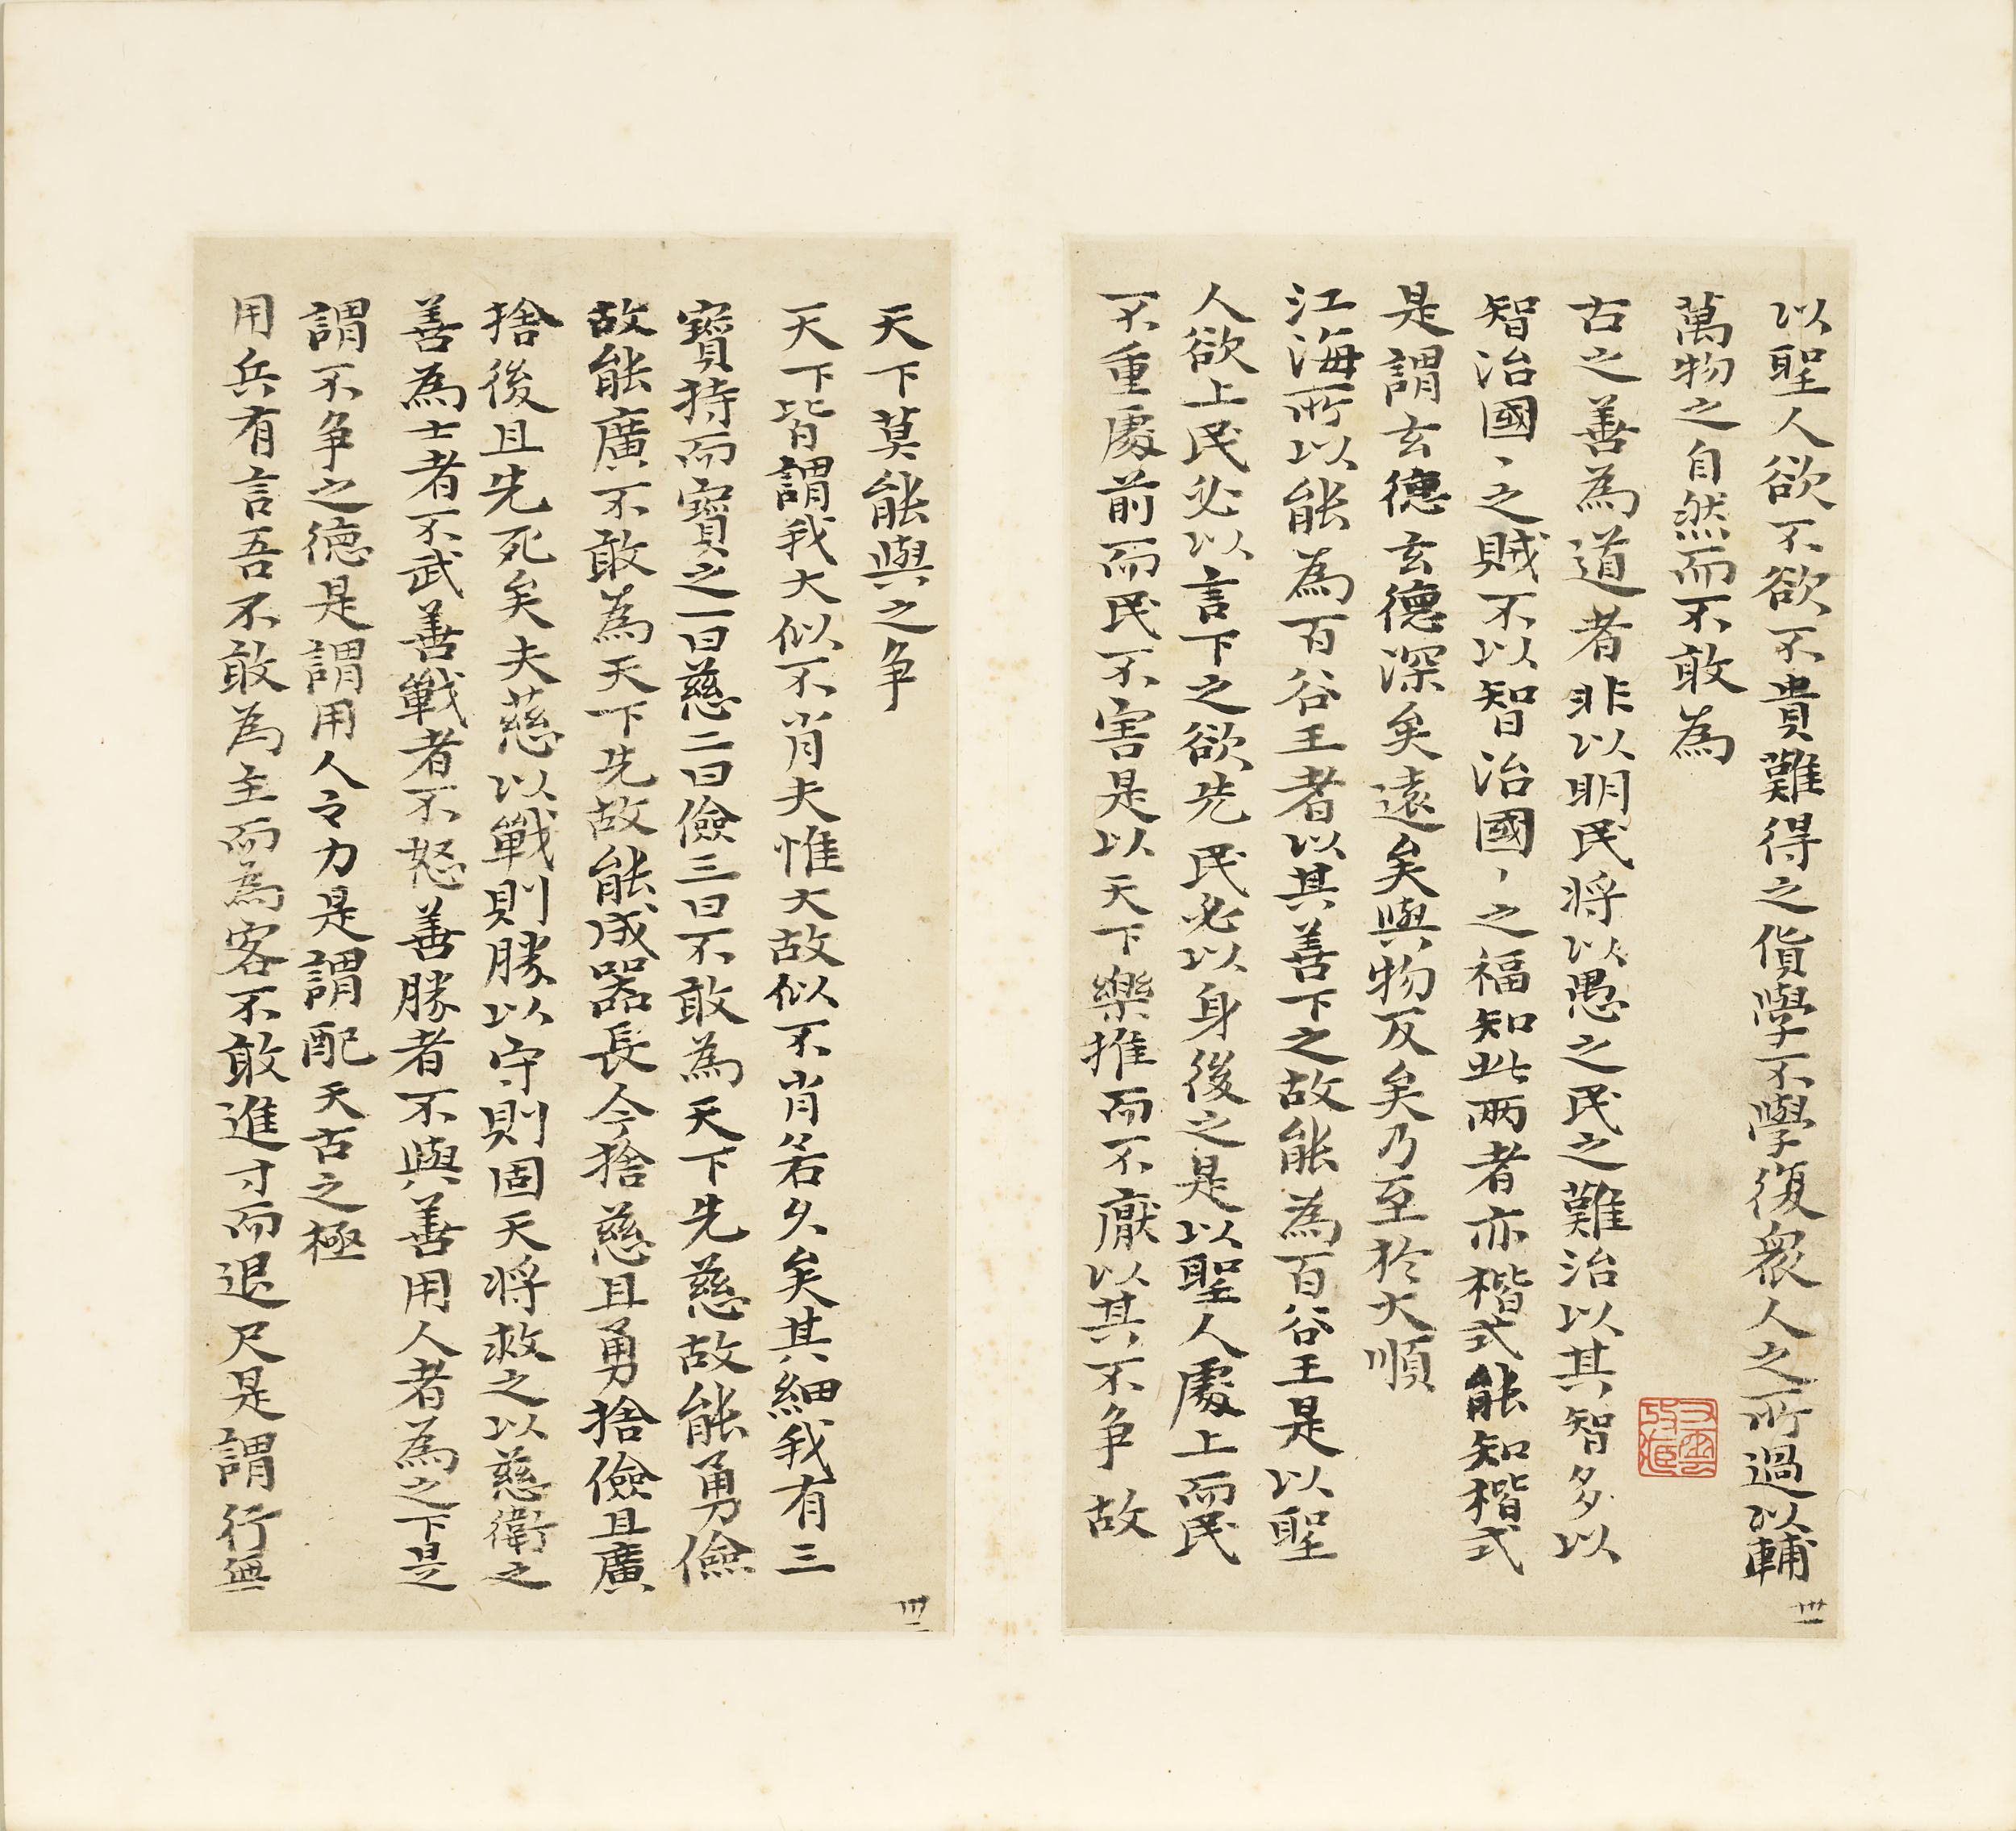 以聖人欲不欲不貴難得之貨學不學復衆人之所過以輔
萬物之自然而不敢為
古之善為道者非以明民將以愚之民之難治以其智多以
智治國、之賊不以智治國、之福知此兩者亦楷式能知楷式
是謂玄德玄德深矣遠矣與物反矣乃至於大順
江海所以能為百谷王者以其善下之故能為百谷王是以聖
人欲上民必以言下之欲先民必以身後之是以聖人處上而民
不重處前而民不害是以天下樂推而不厭以其不争故
卅一
天下莫能與之争
天下皆謂我大似不肖夫惟大故似不肖若久矣其細我有三
寶持而寶之一曰慈二曰儉三曰不敢為天下先慈故能勇儉
故能廣不敢為天下先故能成器長今捨慈且勇捨儉且廣
捨後且先死矣夫慈以戰則勝以守則固天將救之以慈衛之
善為士者不武善戰者不怒善勝者不與善用人者為之下是
謂不争之德是謂用人之力是謂配天古之極
用兵有言吾不敢為主而為客不敢進寸而退尺是謂行無
卅二